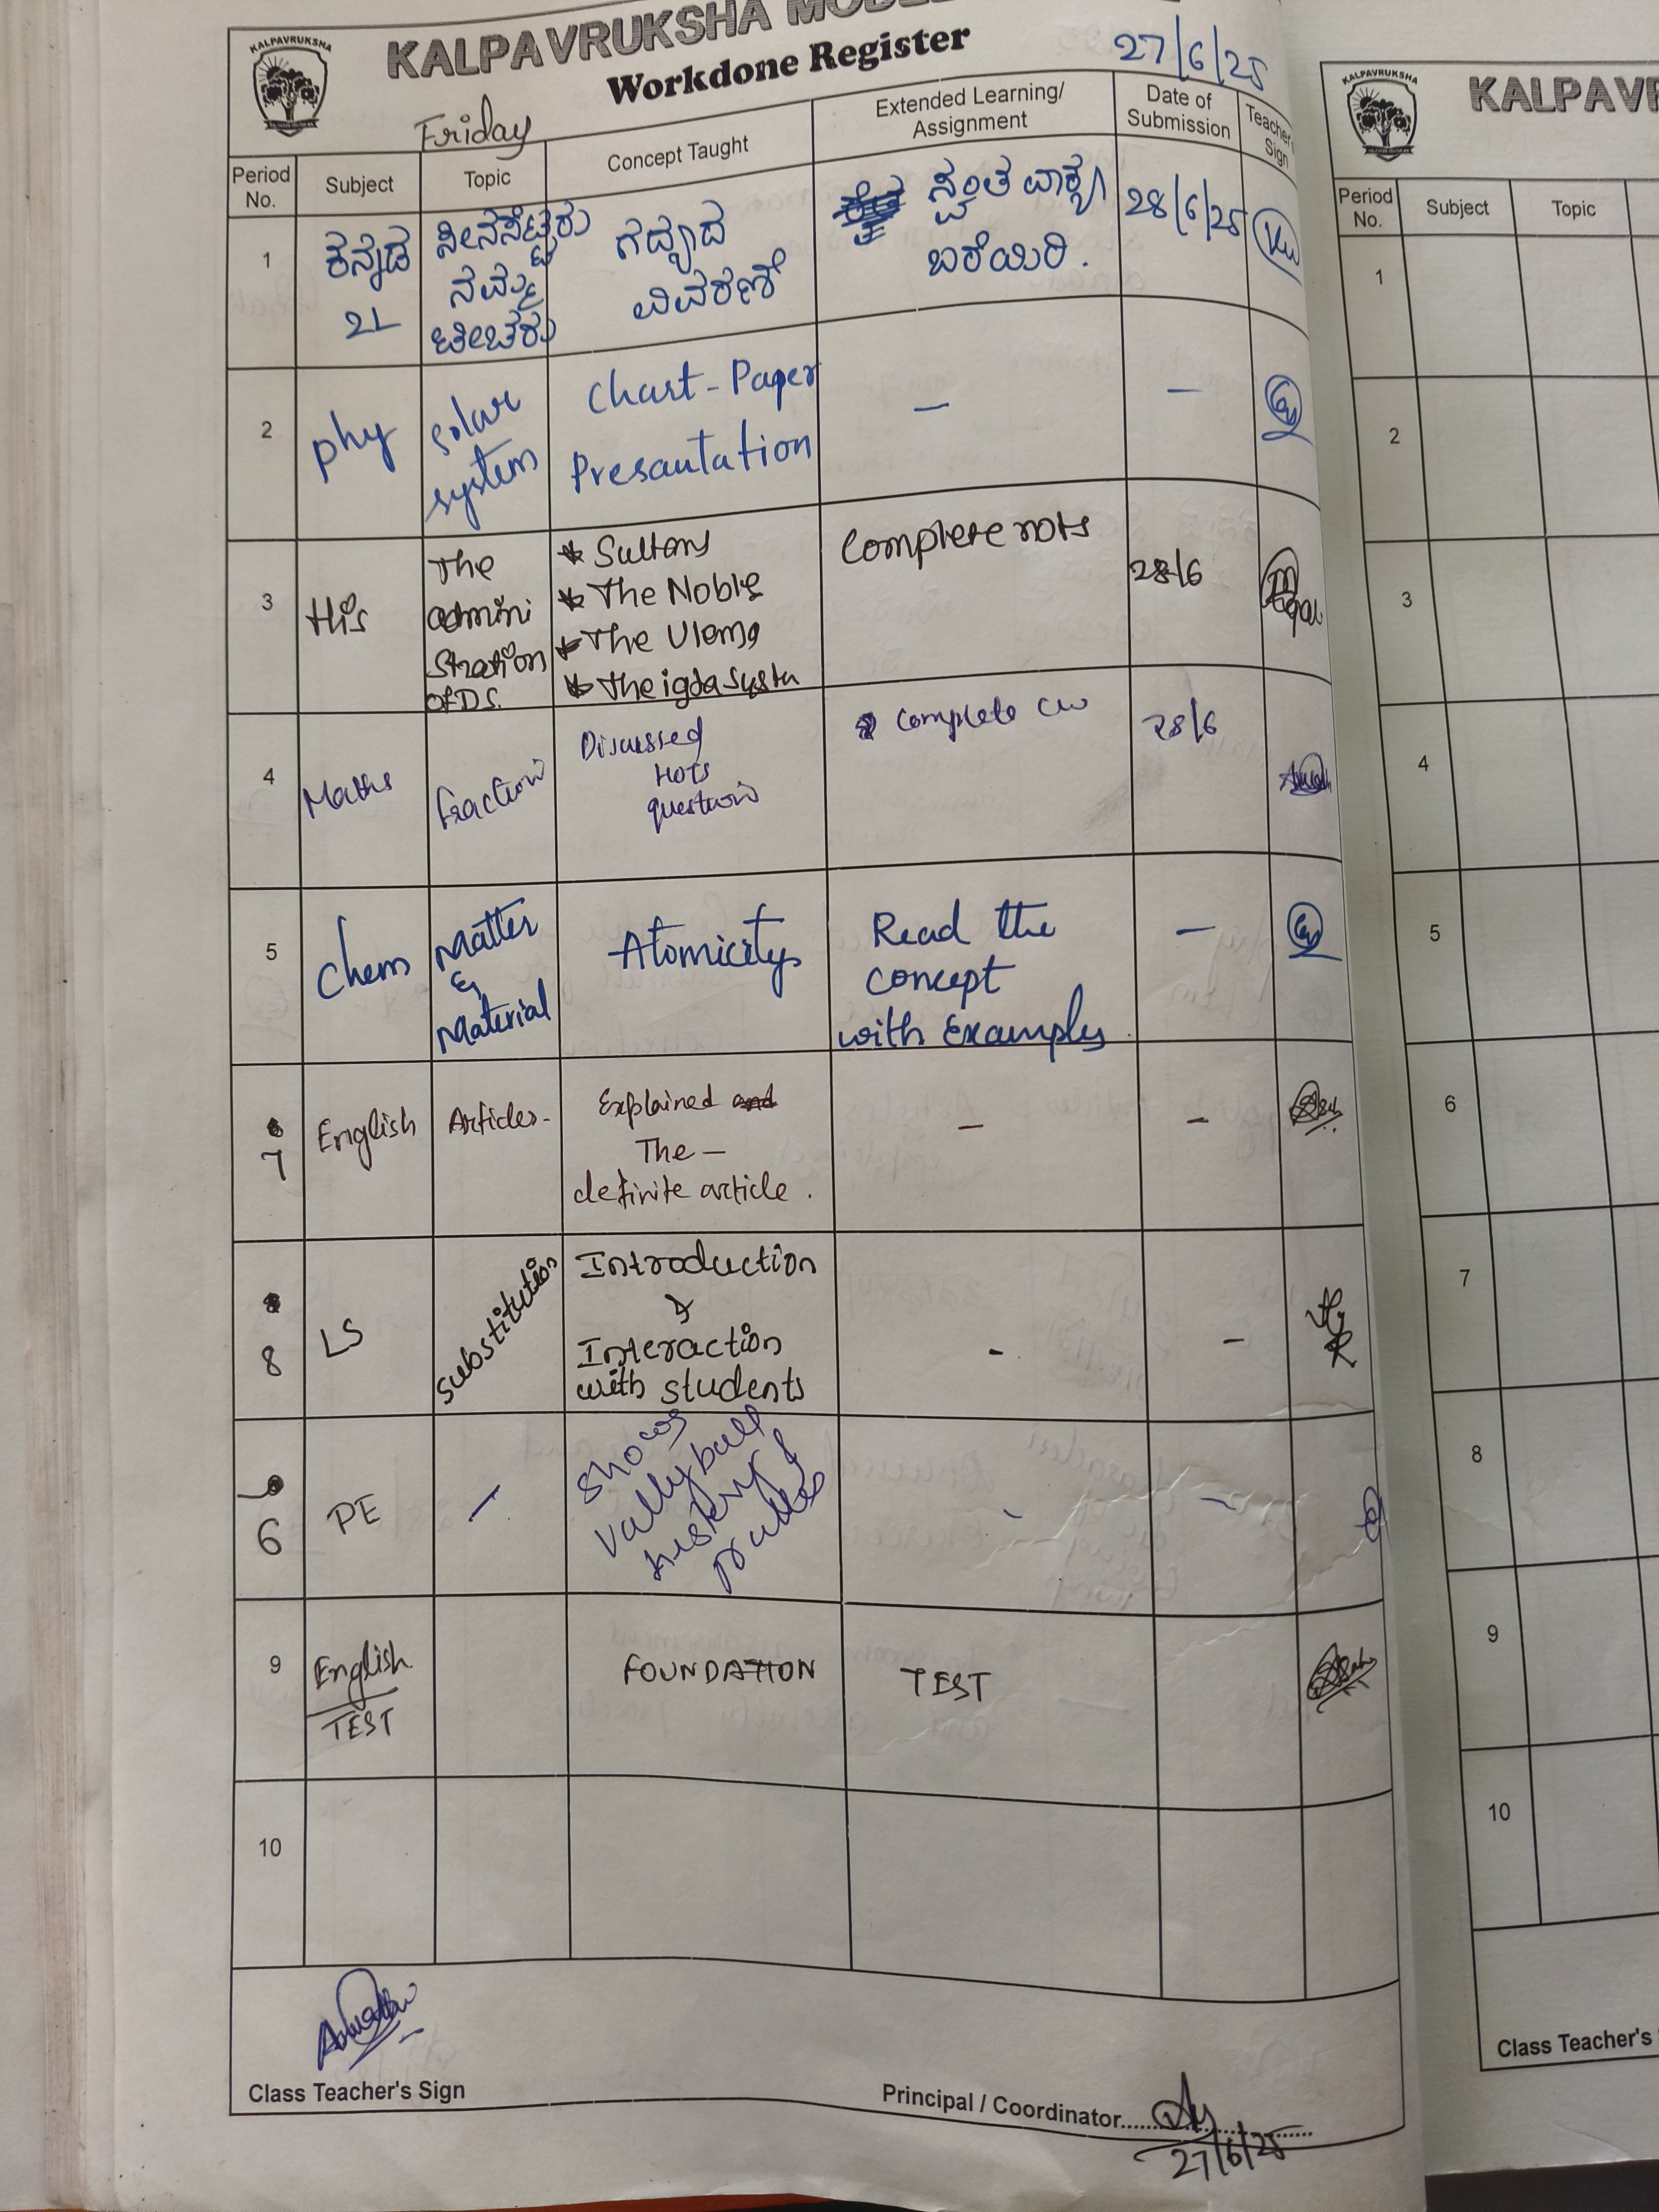 KALPAVRUKSHA
KALPAVRUKSHA
Workdone Register
27/6/25
Friday
Period No.
Subject
Topic
Concept Taught
Extended Learning/ Assignment
Date of Submission
Teacher Sign
1
ಕನ್ನಡ
2L
ಸೀನಸೆಟ್ಟರು
ನಮ್ಮ
ಟೀಚರು
ಗದ್ಯಾದ
ವಿವರಣೆ
ಸ್ವಂತ ವಾಕ್ಯ
ಬರೆಯಿರಿ.
28/6/25
2
phy
solar
system
Chart-Paper
Presautation
—
—
3
His
The
admini
stration
of D.S.
* Sultans
* The Noble
* The Ulema
* The iqta Systm
Complete nots
28/6
4
Maths
fraction
Discussed
HOTS
question
Complete CW
28/6
5
Chem
Matter
&
Material
Atomicity
Read the
concept
with Examples
—
7
English
Articles-
Explained and
The —
definite article.
—
—
8
LS
Substitution
Introduction
&
Interaction
with students
-
—
6
PE
—
Shows
vallyball
history &
-
—
9
English
TEST
FOUNDATION
TEST
10
Class Teacher's Sign
Principal / Coordinator
27/6/25
KALPAVRUKSHA
KALPAV
Period No.
Subject
Topic
1
2
3
4
5
6
7
8
9
10
Class Teacher's